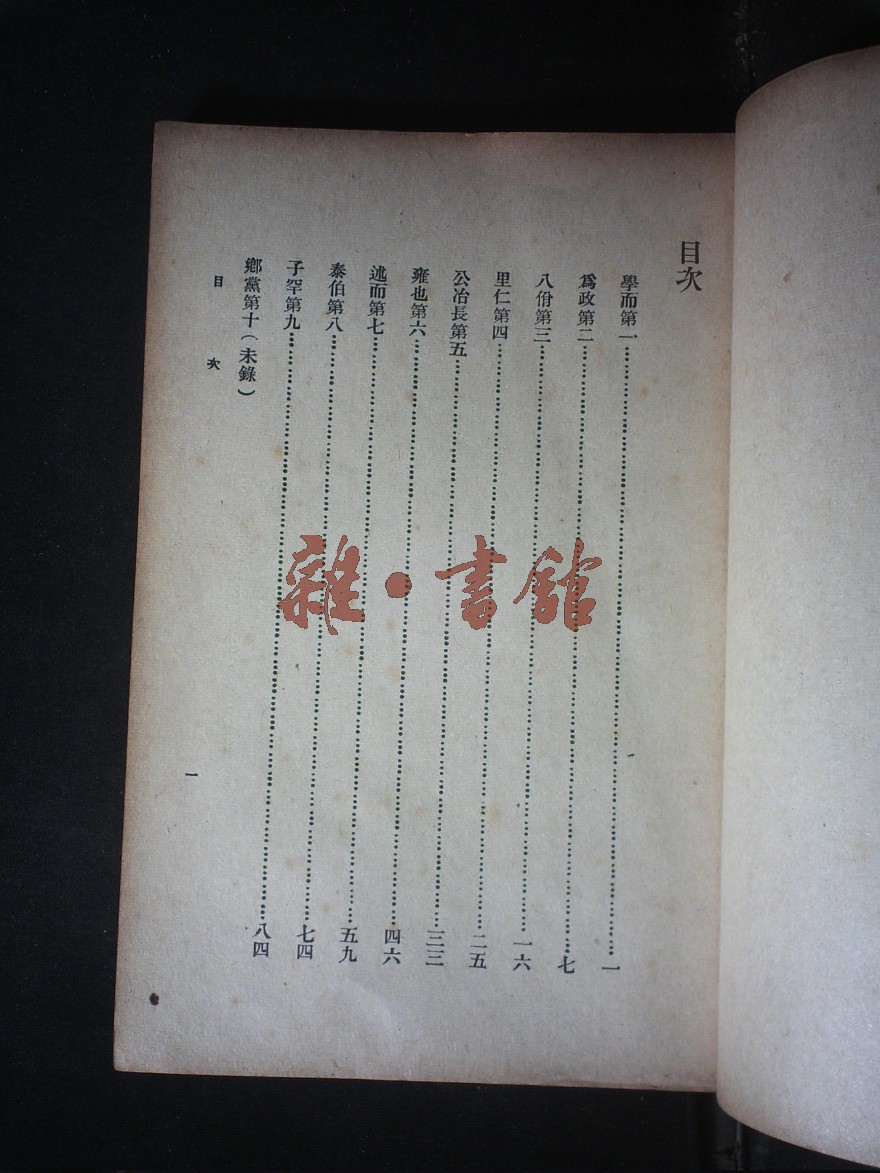 目次
學而第一……一
爲政第二……七
八佾第三……一六
里仁第四……二五
公冶長第五……三三
雍也第六……四六
述而第七……五九
泰伯第八……七四
子罕第九……八四
鄉黨第十(未錄)
目次
一
雜·書館